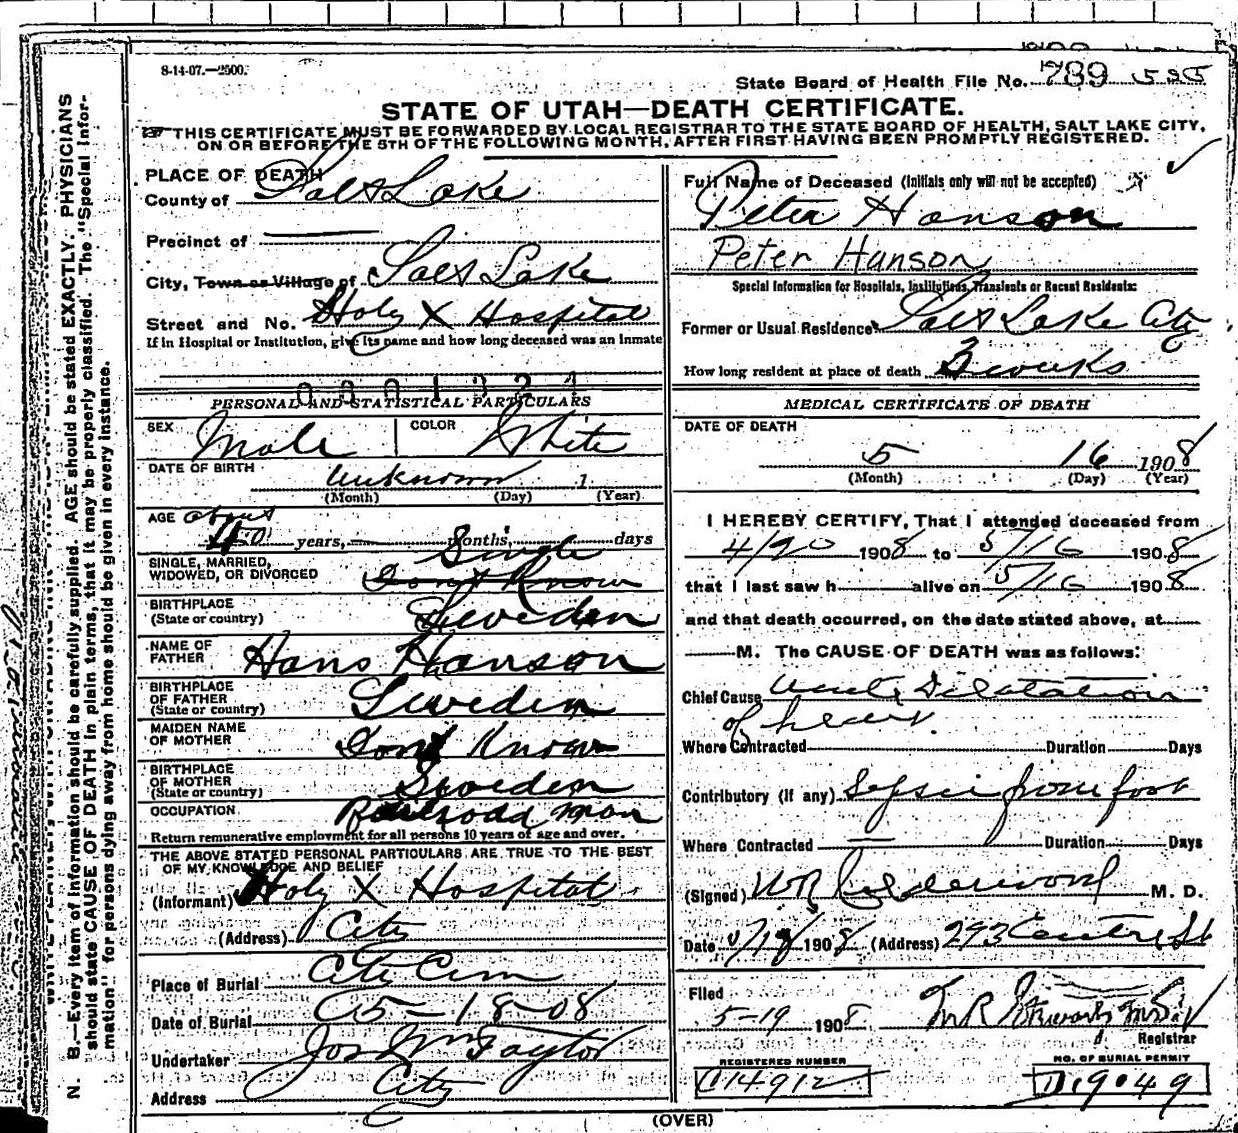 8-14-07.—2500.
State Board of Health File No. 789 535
STATE OF UTAH—DEATH CERTIFICATE.
THIS CERTIFICATE MUST BE FORWARDED BY LOCAL REGISTRAR TO THE STATE BOARD OF HEALTH, SALT LAKE CITY,
ON OR BEFORE THE 5TH OF THE FOLLOWING MONTH, AFTER FIRST HAVING BEEN PROMPTLY REGISTERED.
PLACE OF DEATH
County of Salt Lake
Precinct of
City, Town or Village of Salt Lake
Street and No. Holy X Hospital
If in Hospital or Institution, give its name and how long deceased was an inmate
PERSONAL AND STATISTICAL PARTICULARS
SEX Male COLOR White
DATE OF BIRTH unknown 1
(Month) (Day) (Year)
AGE about
40 years, months, days
SINGLE, MARRIED, WIDOWED, OR DIVORCED Single
Dont Know
BIRTHPLACE (State or country) Sweden
NAME OF FATHER Hans Hanson
BIRTHPLACE OF FATHER (State or country) Sweden
MAIDEN NAME OF MOTHER Dont Know
BIRTHPLACE OF MOTHER (State or country) Sweden
OCCUPATION Railroad man
Return remunerative employment for all persons 10 years of age and over.
THE ABOVE STATED PERSONAL PARTICULARS ARE TRUE TO THE BEST
OF MY KNOWLEDGE AND BELIEF
(Informant) Holy X Hospital
(Address) City
Place of Burial City Cem
Date of Burial 5-18-08
Undertaker Jos Wm Taylor
Address City
Full Name of Deceased (Initials only will not be accepted)
Peter Hanson
Peter Hanson
Special Information for Hospitals, Institutions, Transients or Recent Residents:
Former or Usual Residence Salt Lake City
How long resident at place of death 3 weeks
MEDICAL CERTIFICATE OF DEATH
DATE OF DEATH
5 16 1908
(Month) (Day) (Year)
I HEREBY CERTIFY, That I attended deceased from
4/20 1908 to 5/16 1908
that I last saw h alive on 5/16 1908
and that death occurred, on the date stated above, at
M. The CAUSE OF DEATH was as follows:
Chief Cause acute Dilatation
of heart
Where Contracted Duration Days
Contributory (If any) Sepsis from foot
Where Contracted Duration Days
(Signed) WR Calderwood M. D.
Date 5/18 1908 (Address) 293 Centre St
Filed
5-19 1908
Registrar
REGISTERED NUMBER
C14912
NO. OF BURIAL PERMIT
D19049
(OVER)
N. B.—Every item of information should be carefully supplied. AGE should be stated EXACTLY. PHYSICIANS
should state CAUSE OF DEATH in plain terms, that it may be properly classified. The "Special Infor-
mation" for persons dying away from home should be given in every instance.